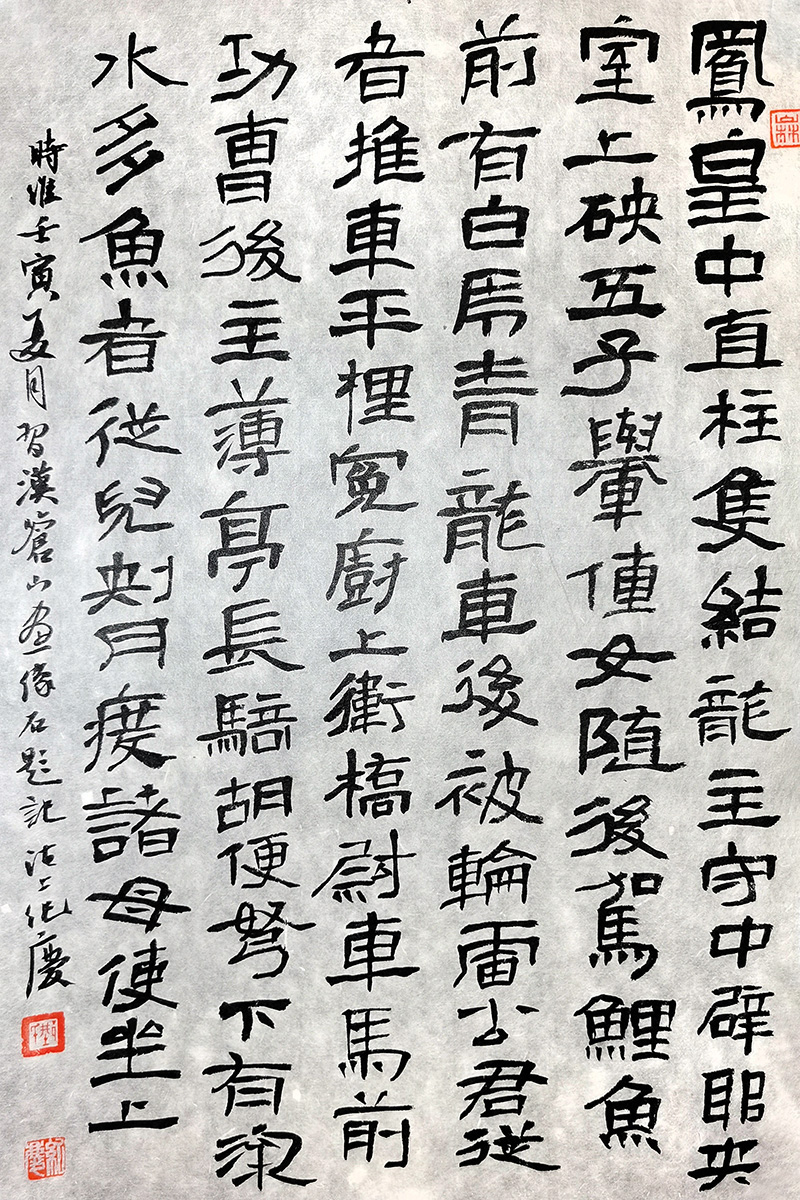 鳳皇中直柱隻結龍主守中辟耶央
室上硤五子轝僡女随後駕鯉魚
前有白馬青龍車後被輪雷公君從
者推車平梩冤廚上衛橋尉車馬前
功曹後主薄亭長騎胡便弩下有深
水多魚者從兒刺舟度諸母使坐上
時維壬寅夏月習漢蒼山画像石題記沽上化慶